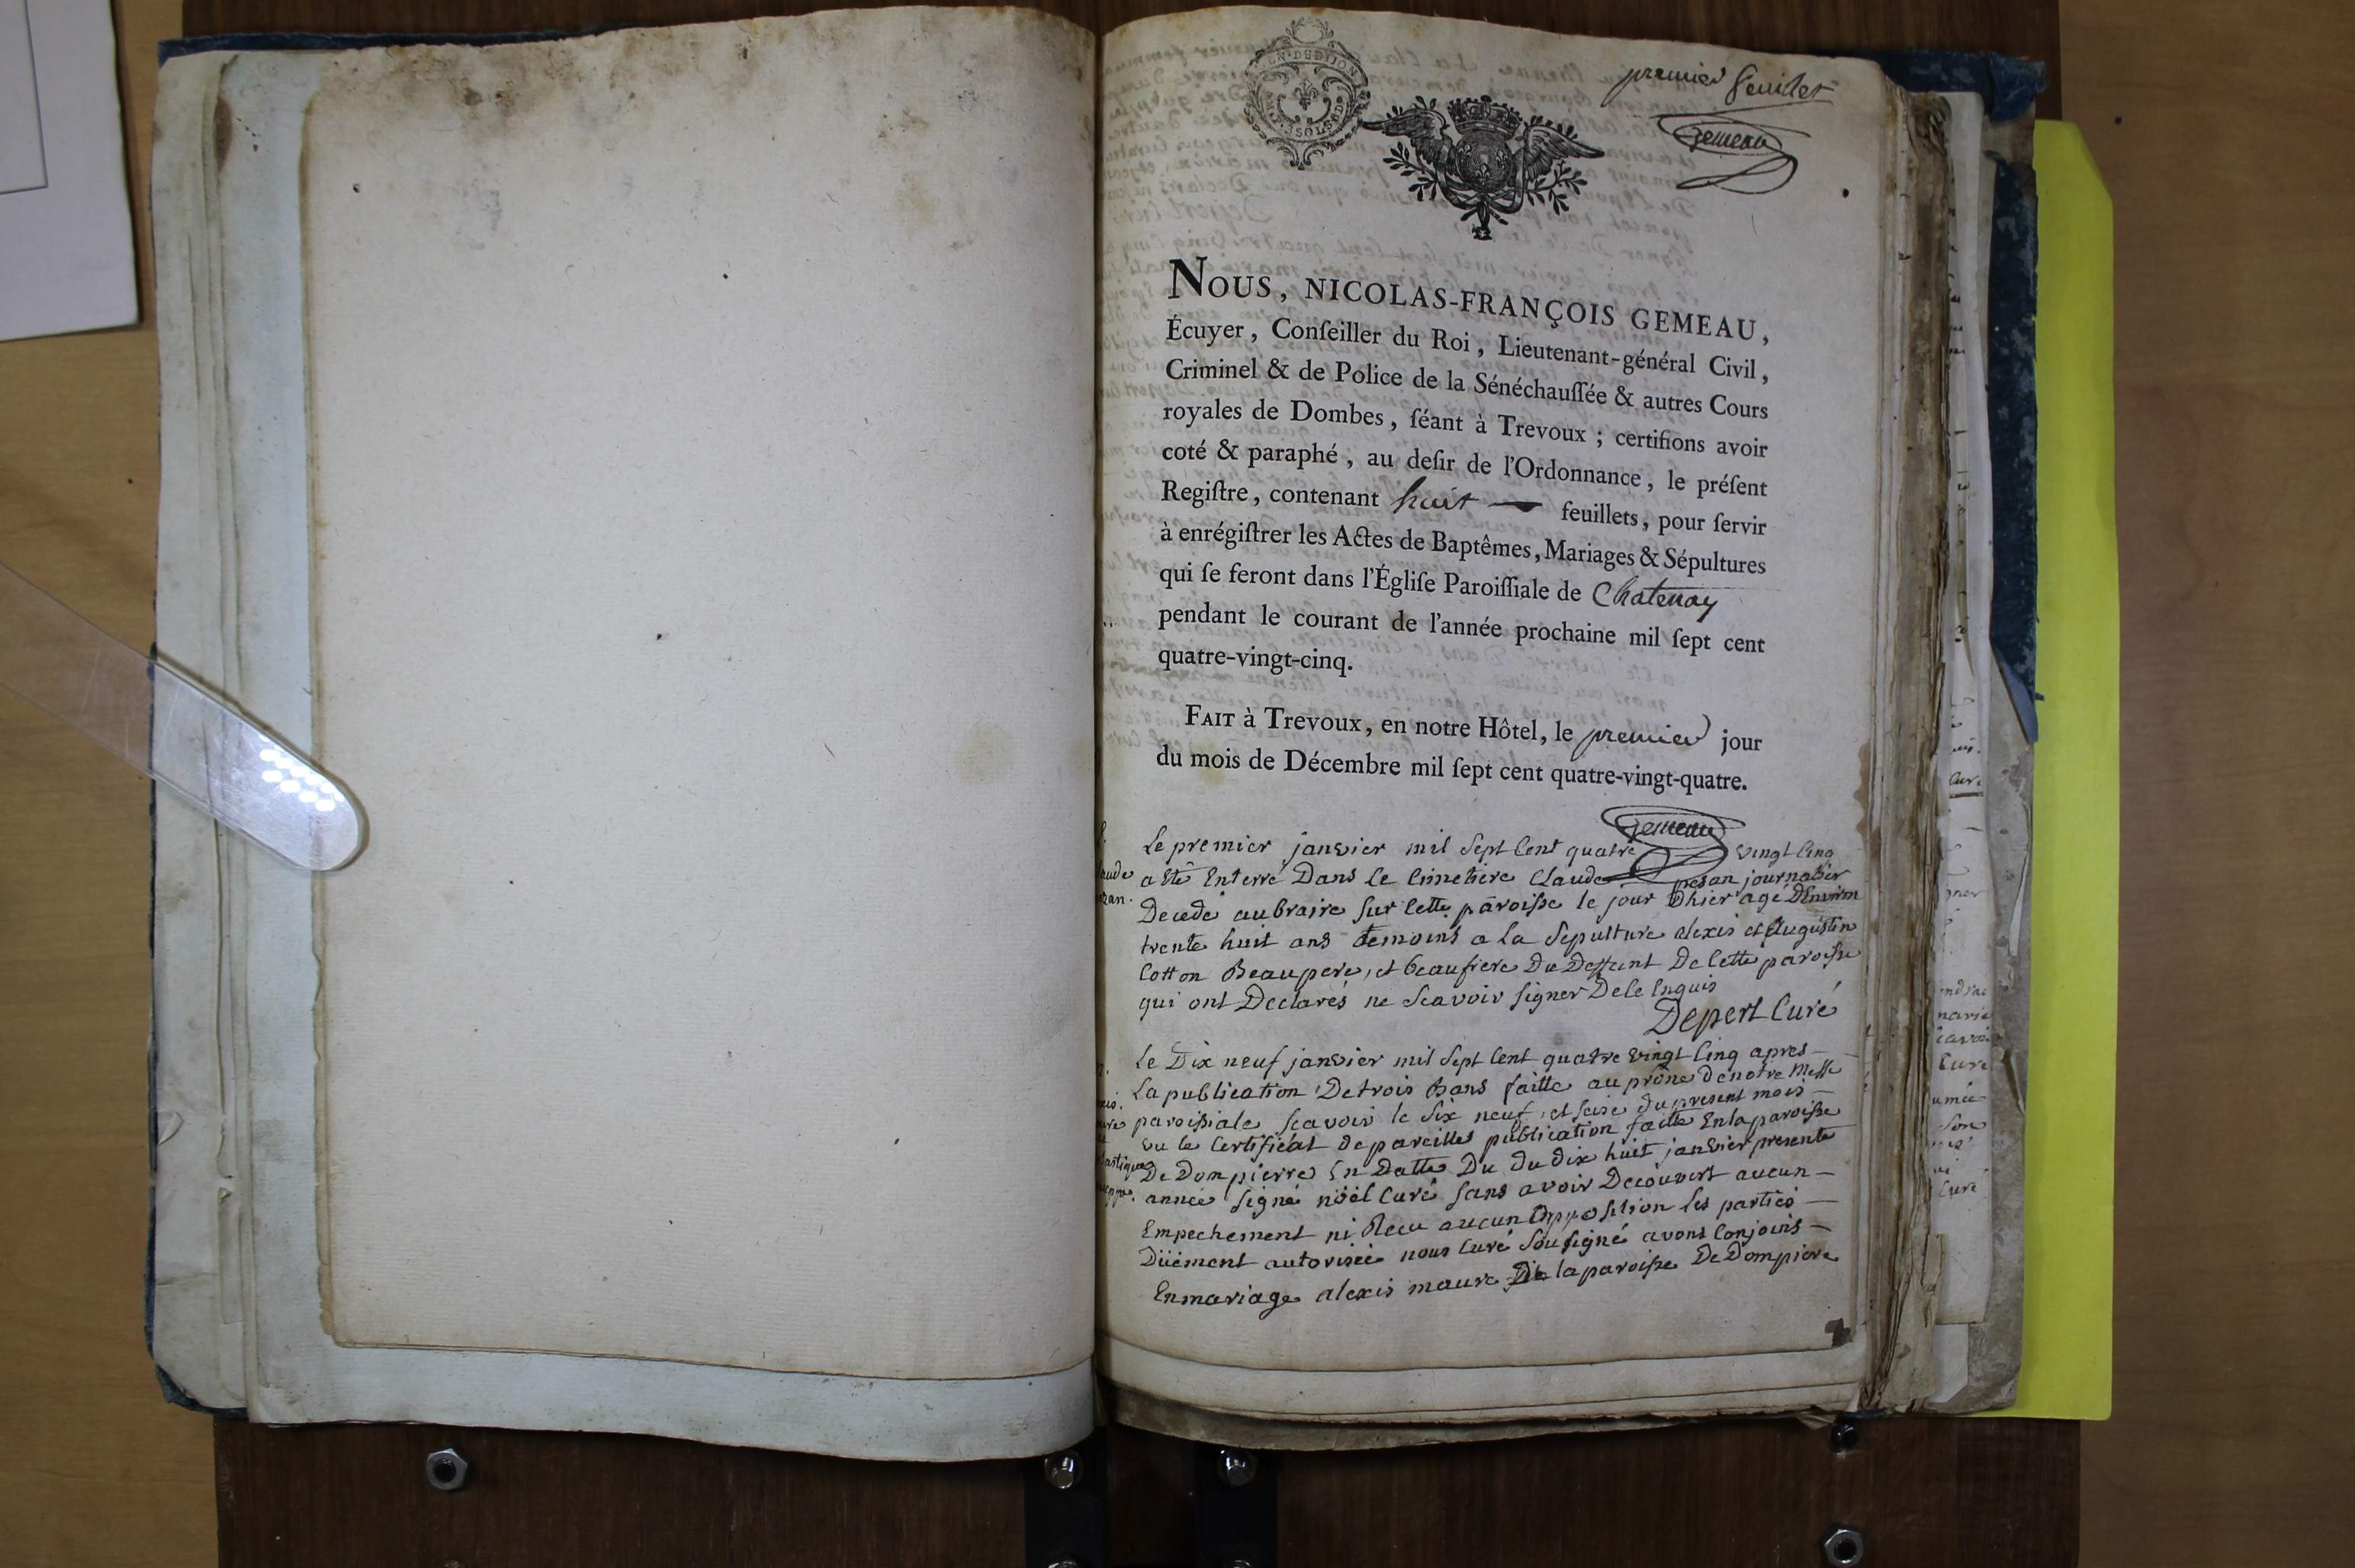 premier feuillet
Gemeau
NOUS, NICOLAS-FRANÇOIS GEMEAU,
Écuyer, Conſeiller du Roi, Lieutenant-général Civil,
Criminel & de Police de la Sénéchauſſée & autres Cours
royales de Dombes, ſéant à Trevoux ; certifions avoir
coté & paraphé, au deſir de l'Ordonnance, le préſent
Regiſtre, contenant huit feuillets, pour ſervir
à enrégiſtrer les Actes de Baptêmes, Mariages & Sépultures
qui ſe feront dans l'Égliſe Paroiſſiale de Chatenay
pendant le courant de l'année prochaine mil ſept cent
quatre-vingt-cinq.
FAIT à Trevoux, en notre Hôtel, le premier jour
du mois de Décembre mil ſept cent quatre-vingt-quatre.
Gemeau
Le premier janvier mil sept cent quatre vingt cinq
a été enterré Dans le cimetiere Claude pesan journalier
Decedé au braire sur cette paroisse le jour Dhier agé Denviron
trente huit ans temoins a la sepulture alexis et augustin
Cotton Beaupere, et beaufrere Du Deffunt De cette paroisse
qui ont Declarés ne scavoir signer De ce enquis
Depert Curé
Le Dix neuf janvier mil sept cent quatre vingt cinq apres
La publication De trois Bans faitte au prône de notre Messe
paroissiale scavoir le six neuf, et seise du present mois
vu le certificat de pareilles publication faitte en la paroisse
De Dompierre en Datte Du du dix huit janvier presente
année signé nöel curé sans avoir Decouvert aucun
Empechement ni Recu aucun opposition les parties
Düement autorisée nous curé soussigné avons conjoins
En mariage alexis maure De la paroisse De Dompiere